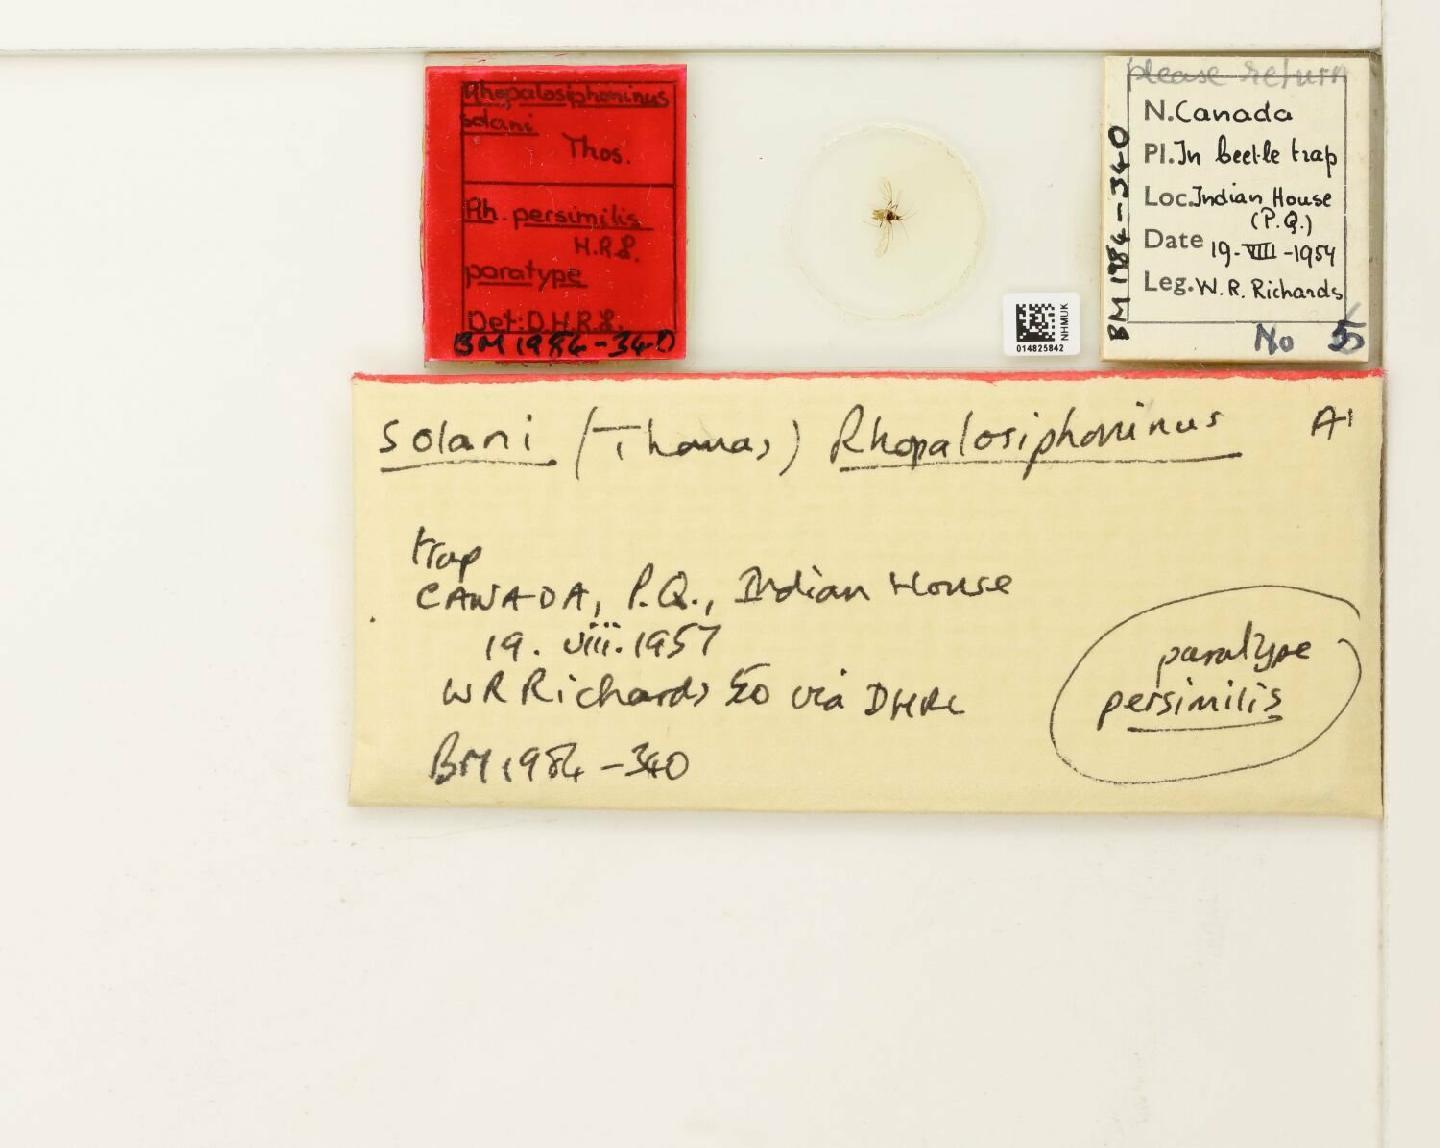 Rhopalosiphoninus
solani
Thos.
Rh. persimilis
H.R.L.
paratype
Det: D.H.R.L.
BM 1984-340
NHMUK
014825842
BM 1984-340
please return
N. Canada
Pl. In beetle trap
Loc. Indian House
(P.Q.)
Date 19-VIII-1954
Leg. W. R. Richards
No 5
solani (Thomas) Rhopalosiphoninus A1
trap
CANADA, P.Q., Indian House
19. viii. 1957
W R Richards via DHRL
BM 1984-340
paratype
persimilis